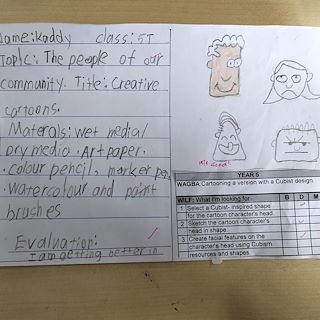 Name: Kaddy class: 5T
Topic: The people of our
community. Title: Creative
cartoons.
Materals: wet media/
Dry media. Art paper.
.colour pencil, marker pen.
.Watercolour and paint
brushes
Evaluation:
I am getting better in
YEAR 5
WAGBA: Cartooning a version with a Cubist design
WILF: What I'm looking for B D M
1 Select a Cubist- inspired shape
for the cartoon character's head.
2 Sketch the cartoon character's
head in shape.
3 Create facial features on the
character's head using Cubism
resources and shapes.